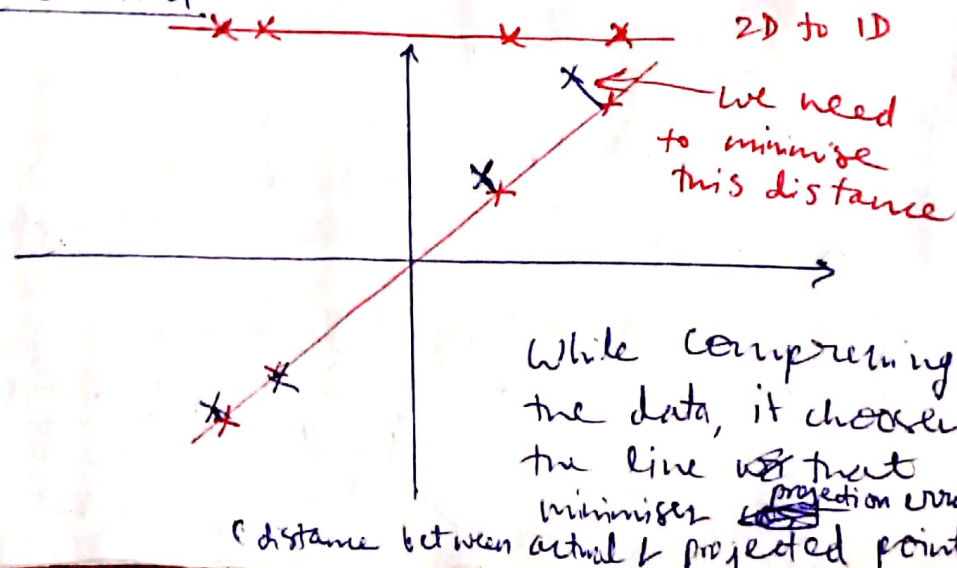 2D to 1D
we need
to minimise
this distance
While compressing
the data, it chooses
the line that
minimises projection erro
(distance between actual & projected point